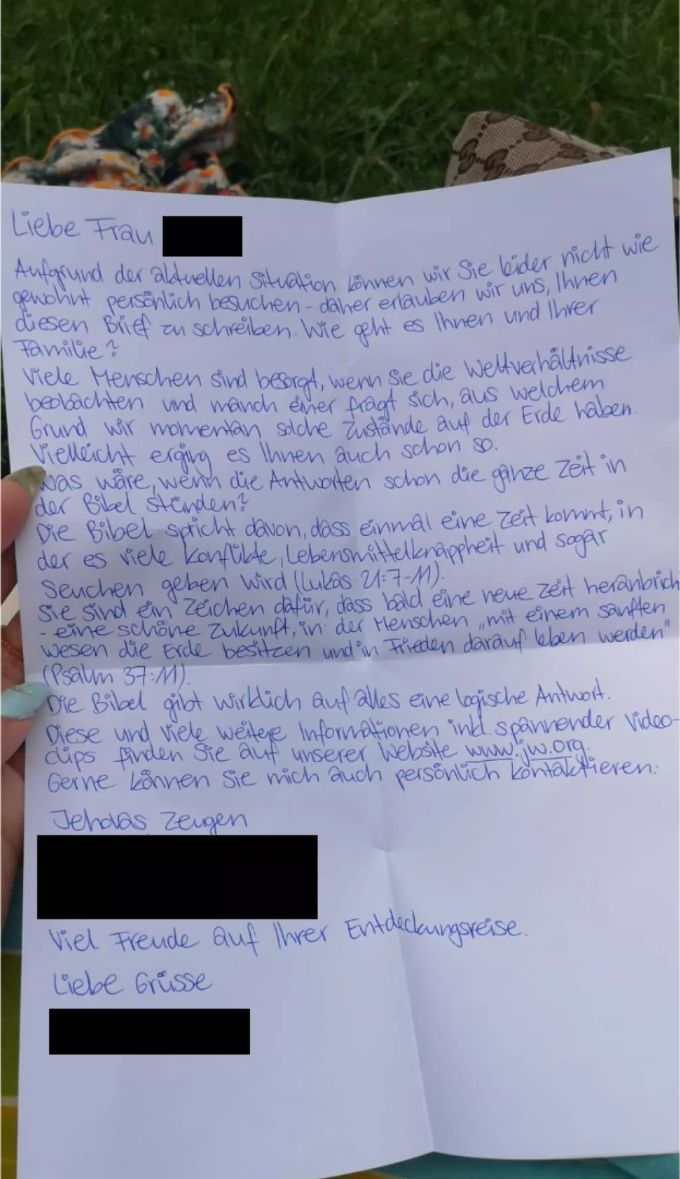 Liebe Frau
Aufgrund der aktuellen Situation können wir Sie leider nicht wie
gewohnt persönlich besuchen - daher erlauben wir uns, Ihnen
diesen Brief zu schreiben. Wie geht es Ihnen und Ihrer
Familie?
Viele Menschen sind besorgt, wenn Sie die Weltverhältnisse
beobachten und manch einer fragt sich, aus welchem
Grund wir momentan solche Zustände auf der Erde haben.
Vielleicht erging es Ihnen auch schon so.
Was wäre, wenn die Antworten schon die ganze Zeit in
der Bibel stünden?
Die Bibel spricht davon, dass einmal eine Zeit kommt, in
der es viele Konflikte, Lebensmittelknappheit und sogar
Seuchen geben wird (Lukas 21:7-11).
Sie sind ein Zeichen dafür, dass bald eine neue Zeit heranbrich
- eine schöne Zukunft, in der Menschen „mit einem sanften
Wesen die Erde besitzen und in Frieden darauf leben werden"
(Psalm 37:11).
Die Bibel gibt wirklich auf alles eine logische Antwort.
Diese und viele weitere Informationen inkl. spannender Video-
clips finden Sie auf unserer Website www.jw.org.
Gerne können Sie mich auch persönlich kontaktieren:
Jehovas Zeugen
Viel Freude auf Ihrer Entdeckungsreise.
Liebe Grüsse